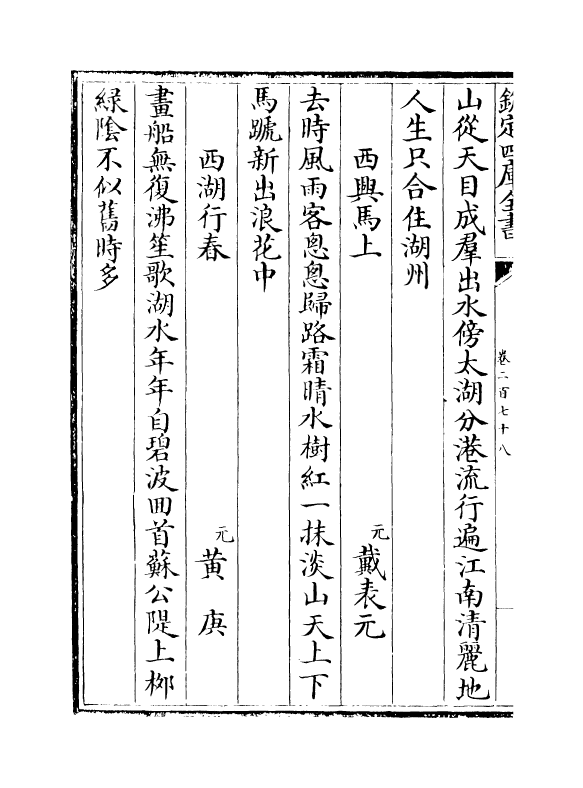 欽定四庫全書
卷二百七十八
山從天目成羣出水傍太湖分港流行遍江南清麗地
人生只合住湖州
西興馬上 元 戴表元
去時風雨客悤悤歸路霜晴水樹紅一抹淡山天上下
馬蹏新出浪花中
西湖行春 元 黄庚
畫船無復沸笙歌湖水年年自碧波囬首蘇公隄上桞
緑陰不似舊時多